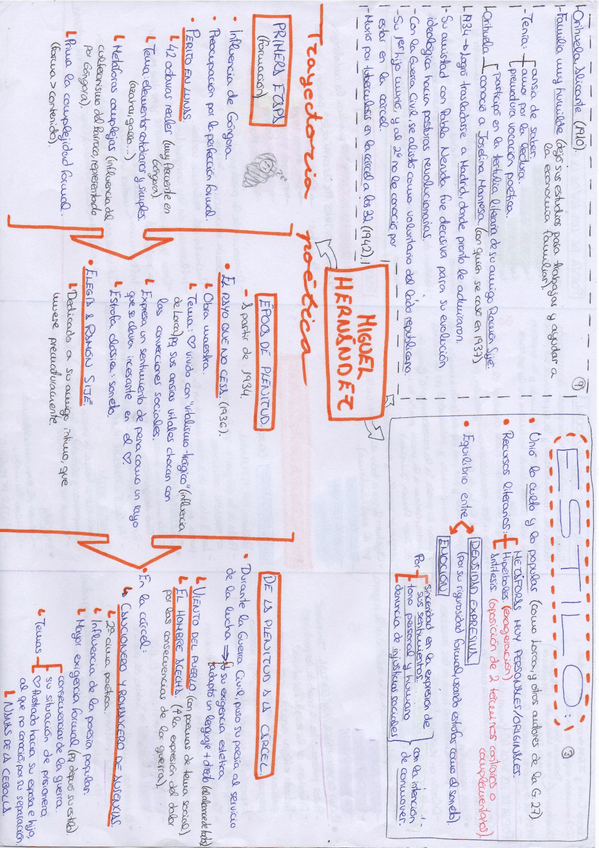 MIGUEL
HERNÁNDEZ
↳ Orihuela, Alicante (1910)
- Familia muy humilde (dejó sus estudios para trabajar y ayudar a
la economía familiar)
- Tenía:
ansia de saber.
amor por la lectura.
prematura vocación poética.
↳ Orihuela
participó en la tertulia literaria de su amigo Ramón Sijé.
conoció a Josefina Manresa (con quien se casó en 1937)
↳ 1934 → logró trasladarse a Madrid, donde pronto le admiraron.
- Su amistad con Pablo Neruda fue decisiva para su evolución
ideológica hacia posturas revolucionarias.
- Con la Guerra Civil, se alistó como voluntario del lado republicano
- Su 1er hijo murió, y al 2º no le conoció por
estar en la cárcel.
- Murió por tuberculosis en la cárcel a los 32 (1942)
ESTILO:
③
• Unió lo culto y lo popular (como Lorca y otros autores de la G-27)
• Recursos literarios
METÁFORAS MUY PERSONALES/ORIGINALES.
Hipérboles (exageración)
Antítesis (oposición de 2 términos contrarios o
complementarios)
• Equilibrio entre
DENSIDAD EXPRESIVA
(por su rigurosidad formal, usando estrofas como el soneto)
EMOCIÓN
Por
sinceridad en la expresión de
sus sentimientos.
tono personal y humano
denuncia de injusticias sociales
con la intención
de conmover.
Trayectoria poética
PRIMERA ETAPA
(Formación)
• Influencia de Góngora
• Preocupación por la perfección formal.
• PERITO EN LUNAS
↳ 42 octavas reales (muy frecuente en
Góngora)
↳ Tema: elementos cotidianos y simples
↳ Metáforas complejas (influencia del
culteranismo del Barroco, representado
por Góngora).
↳ Prima la complejidad formal.
(forma > contenido).
ÉPOCA DE PLENITUD
↳ A partir de 1934.
• EL RAYO QUE NO CESA (1936).
↳ Obra maestra
↳ Tema: ♡ vivido con "vitalismo trágico" (influencia
de Lorca) pq sus ansias vitales chocan con
las convenciones sociales.
↳ Expresa un sentimiento de pena como un rayo
que se clava incesante en el ♡.
↳ Estrofa clásica: soneto.
• ELEGÍA A RAMÓN SIJÉ
↳ Dedicada a su amigo íntimo, que
muere prematuramente.
DE LA PLENITUD A LA CÁRCEL
• Durante la Guerra Civil, puso su poesía al servicio
de la lucha ⇒
↓ su exigencia estética
adoptó un lenguaje + directo
↳ VIENTO DEL PUEBLO (con poemas de tema social)
↳ EL HOMBRE ACECHA (↑ la expresión del dolor
por las consecuencias de la guerra).
• En la cárcel:
↳ CANCIONERO Y ROMANCERO DE AUSENCIAS
↳ 2ª cima poética.
↳ Influencia de la poesía popular.
↳ Mayor exigencia formal
↳ Temas
consecuencias de la guerra
su situación de prisionero
♡ frustrado hacia su esposa e hijo,
al que no conoció, por su separación
↳ NANAS DE LA CEBOLLA